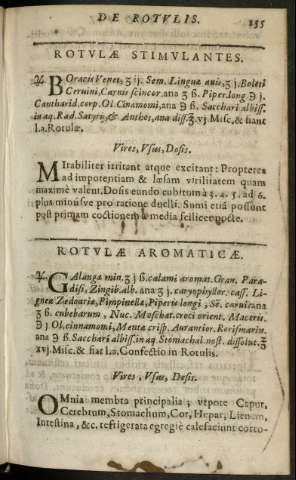 DE ROTVLIS. 155
ROTVLÆ STIMVLANTES.
℞. BOracis Venet. ʒ ij. Sem. Linguæ auis, ʒ j. Boleti
Ceruini, Carnis scincor. ana ʒ ß. Piper. long. ℈ j.
Cantharid. corp. Ol. Cinamomi, ana ℈ ß. Sacchari albiss.
in aq. Rad. Satyrij, & Anthos, ana diss. ℥ vj. Misc. & fiant
l.a. Rotulæ.
Vires, Vsus, Dosis.
MIrabiliter irritant atque excitant: Propterea
ad impotentiam & læsam virilitatem quam
maximè valent. Dosis eundo cubitum à 3. 4. 5. ad 6.
plus minúsve pro ratione duelli. Sumi etiā possunt
post primam coctionem, media scilicet nocte.
ROTVLÆ AROMATICÆ.
℞. GAlangæ min. ʒ j ß. calami aromat. Gran. Para-
disi, Zingib. alb. ana ʒ j. caryophyllor. cass. Li-
gneæ Zedoariæ, Pimpinellæ, Piperis longi, Sē. carui, ana
ʒ ß. cubebarum, Nuc. Moschat. croci orient. Maceris.
℈ j. Ol. cinnamomi, Mentæ crisp. Aurantior. Rorismarin.
ana ℈ ß. Sacchari albiss. in aq. Stomachal. nost. dissolut. ℥
xvj. Misc. & fiat l.a. Confectio in Rotulis.
Vires, Vsus, Dosis.
OMnia membra principalia; vtpote Caput,
Cerebrum, Stomachum, Cor, Hepar, Lienem,
Intestina, &c. refrigerata egregiè calefaciunt corro-